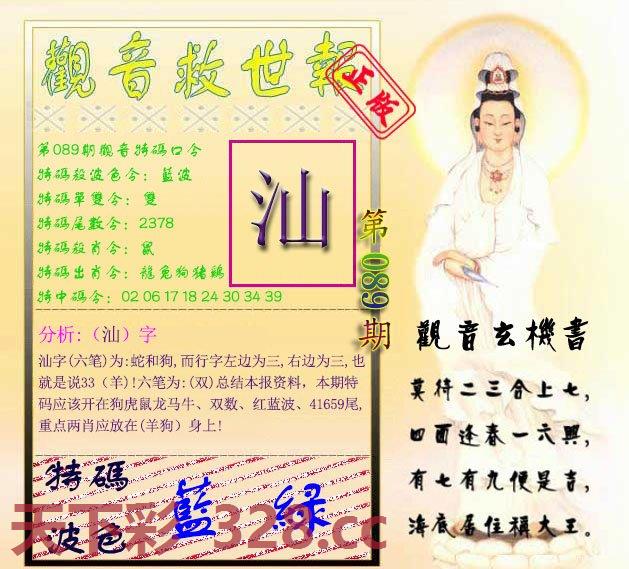 觀音救世報
正版
第089期觀音特碼口令
特碼殺波色令：藍波
特碼單雙令：雙
特碼尾數令：2378
特碼殺肖令：鼠
特碼出肖令：龍兔狗猪鷄
特中碼令：02 06 17 18 24 30 34 39
汕
第089期
分析:（汕）字
汕字(六笔)为:蛇和狗,而行字左边为三,右边为三,也
就是说33（羊)!六笔为:(双)总结本报资料，本期特
码应该开在狗虎鼠龙马牛、双数、红蓝波、41659尾,
重点两肖应放在(羊狗）身上!
特碼
波色
藍 綠
天下彩 328.cc
觀音玄機書
莫待二三合上七，
四面逢春一六興，
有七有九便是吉，
海底居住稱大王。